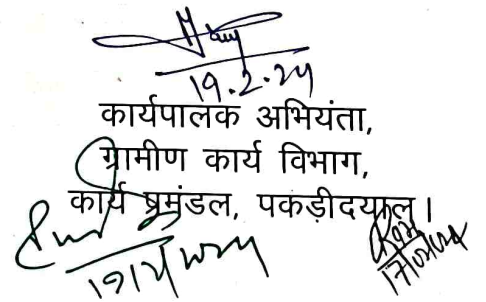 19.2.24
कार्यपालक अभियंता,
ग्रामीण कार्य विभाग,
कार्य प्रमंडल, पकड़ीदयाल।